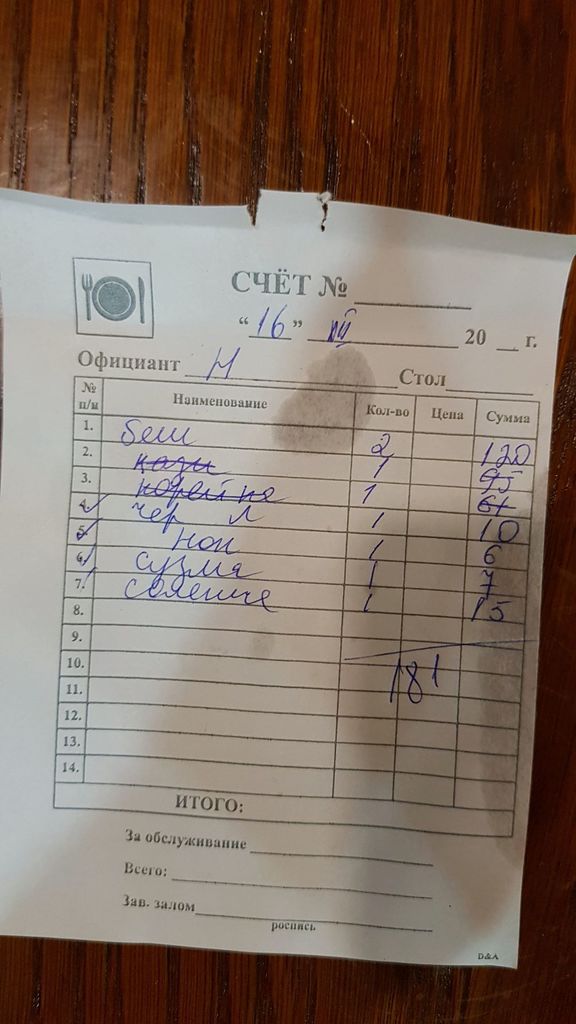 СЧЁТ № ____
“16” III 20 __ г.
Официант Н Стол
№ п/н Наименование Кол-во Цена Сумма
1. беш 2 120
2. кази 1 95
3. корейка 1 61
4. чер л 1 10
5. нон 1 6
6. сузма 1 7
7. соление 1 15
8.
9.
10. 181
11.
12.
13.
14.
ИТОГО:
За обслуживание
Всего:
Зав. залом
роспись
D&A